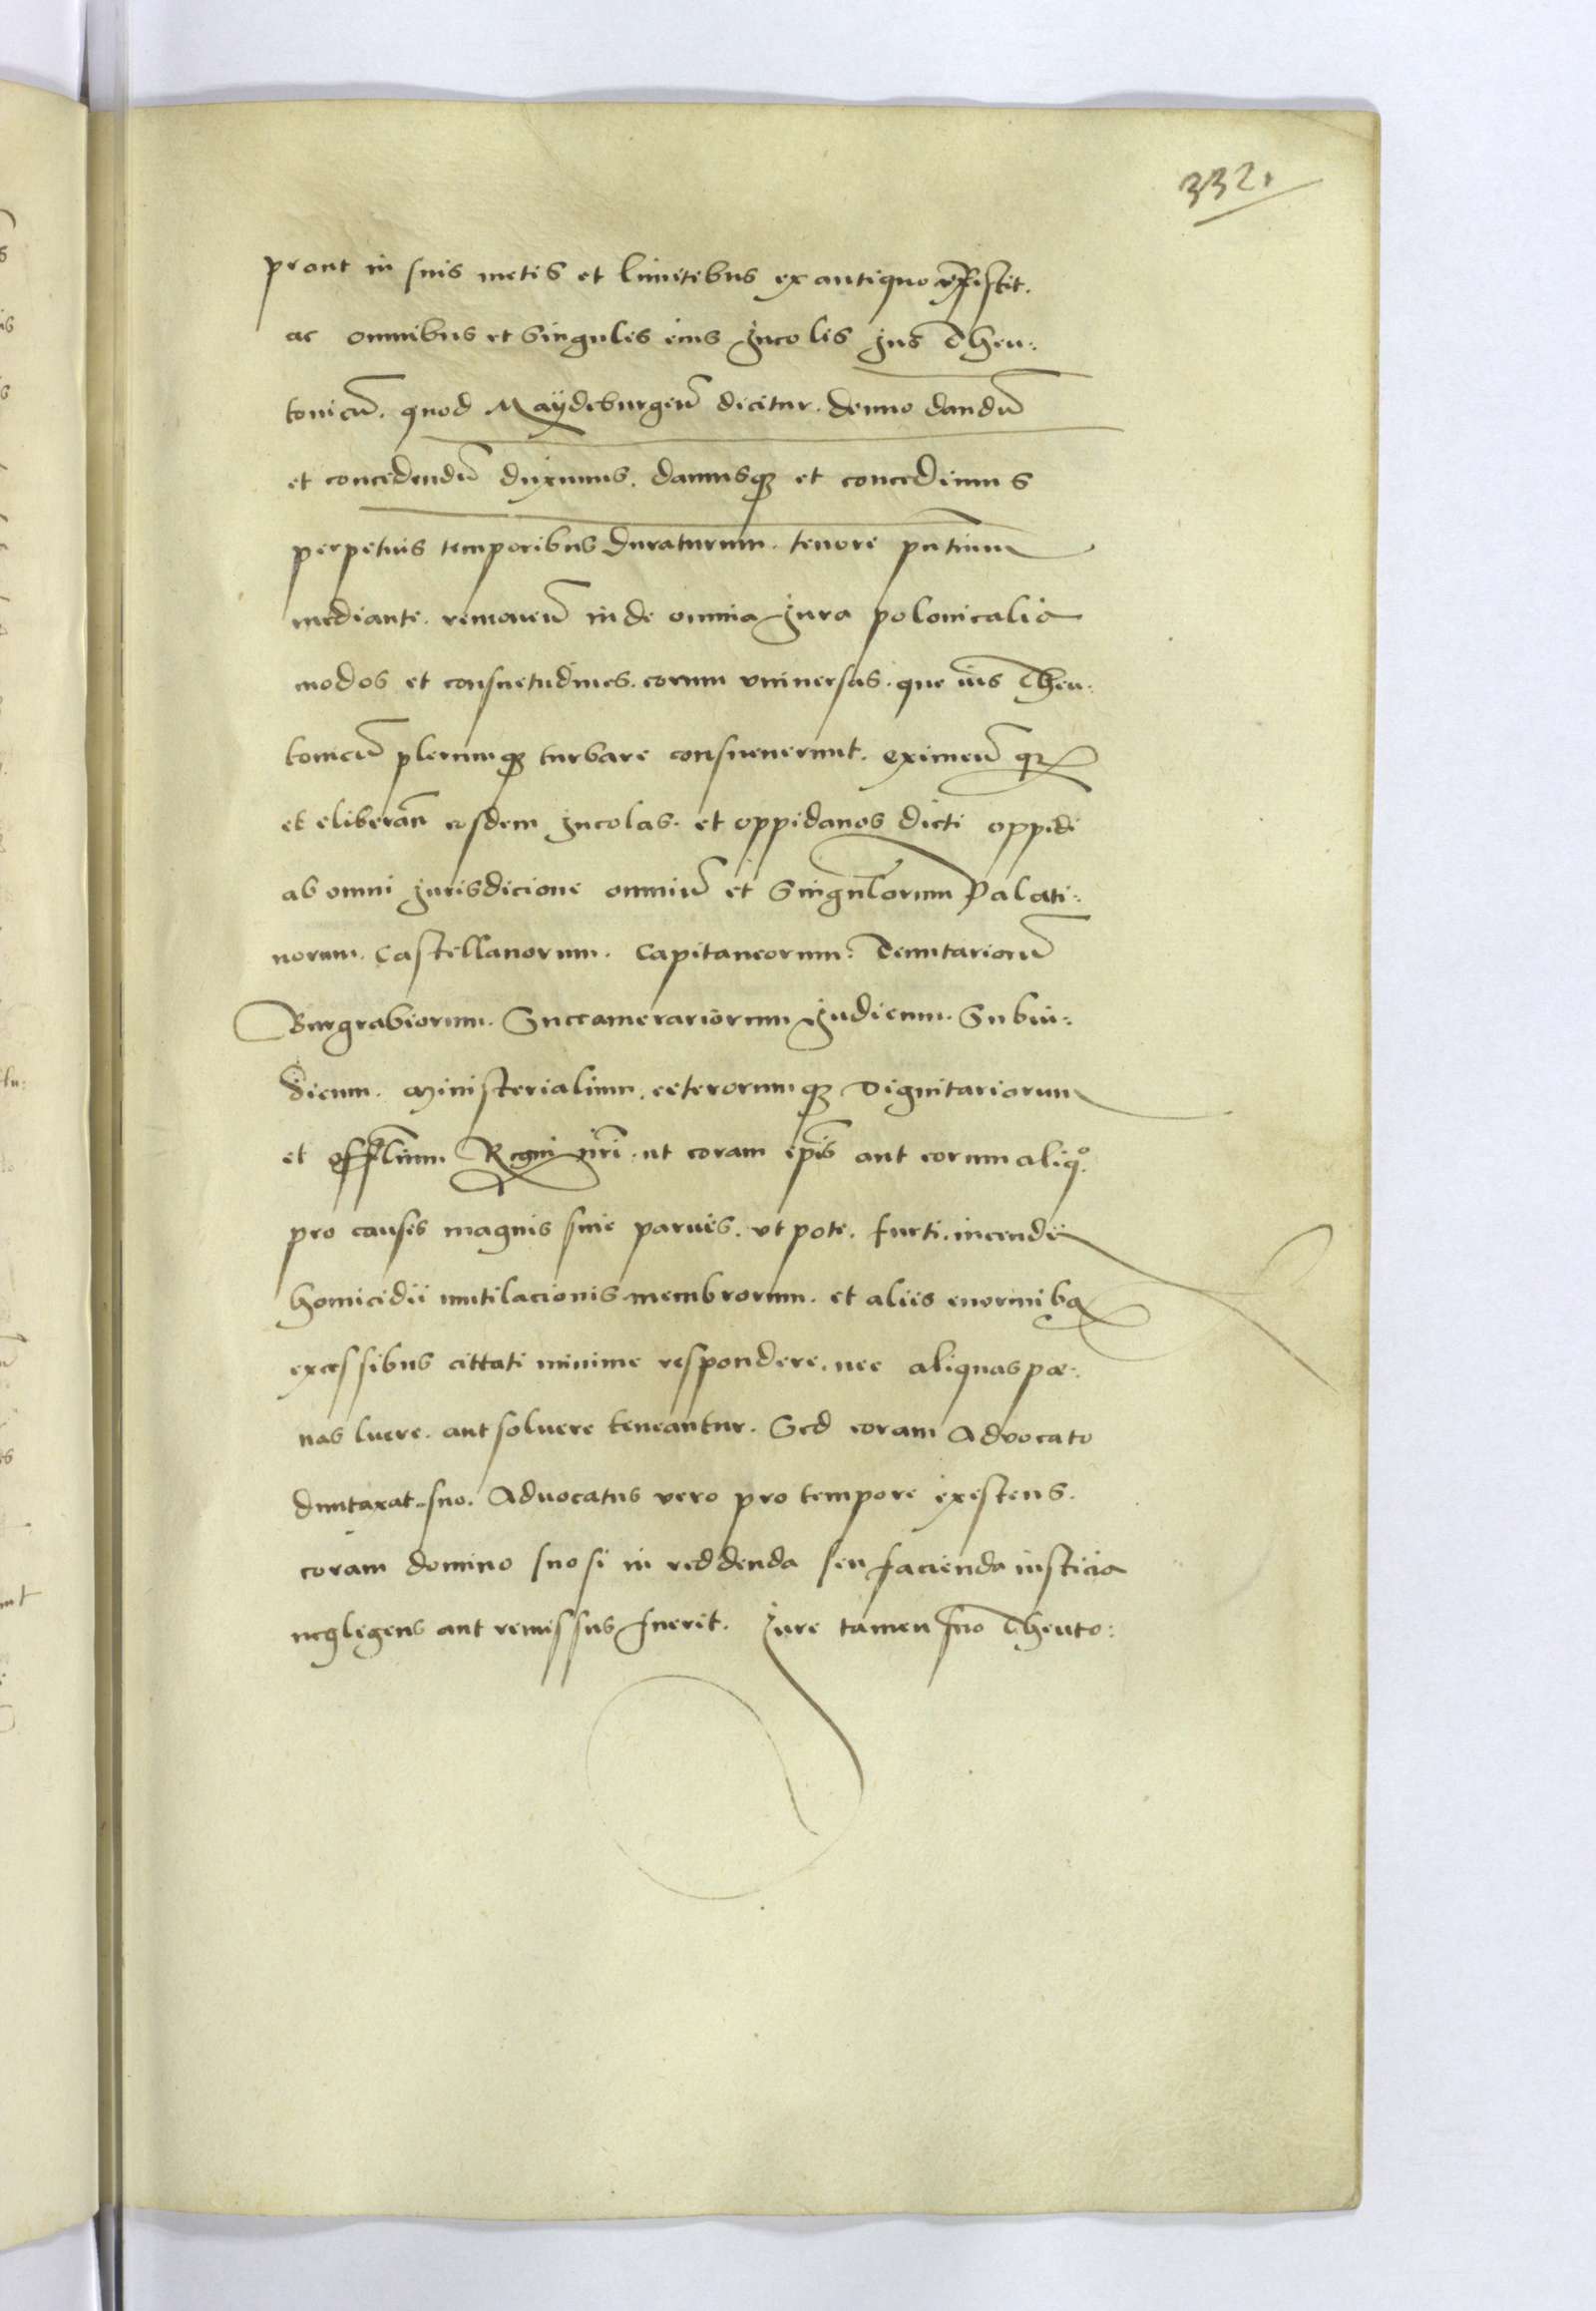 332.
prout in suis metis et limitibus ex antiquo consistit.
ac omnibus et singulis eius Jncolis Jus Theu:
tonicū. quod Maÿdeburgeñ dicitur. denuo dandū
et concedendū duximus. damusqȝ et concedimus
perpetuis temporibus duraturum. tenore pñtium
mediante. remoueñ inde omnia Jura polonicalia
modos et consuetudines. eorum vniuersas. que ius Theu:
tonicū plerumqȝ turbare consueuerunt. eximeñ qȝ
et eliberañ eosdem Jncolas. et oppidanos dicti oppidi
ab omni Jurisdicione omniū et singulorum Palati:
norum. Castellanorum. Capitaneorum: Tenutariorū
Burgrabiorum. Succamerariorum Judicum. Subiu:
dicum. Ministerialium. ceterorumqȝ Dignitariorum
et offlium Regni nri. ut coram ipis aut eorum aliqo.
pro causis magnis siue paruis. ut pote. furti. incendii
homicidii mutilacionis membrorum. et aliis enormibȝ
excessibus cittati minime respondere. nec aliquas pœ:
nas luere. aut soluere teneantur. Sed coram Aduocato
duntaxat suo. Aduocatus vero pro tempore existens.
coram domino suo si in reddenda seu facienda iusticia
neglegens aut remissus fuerit. Jure tamen suo Theuto: